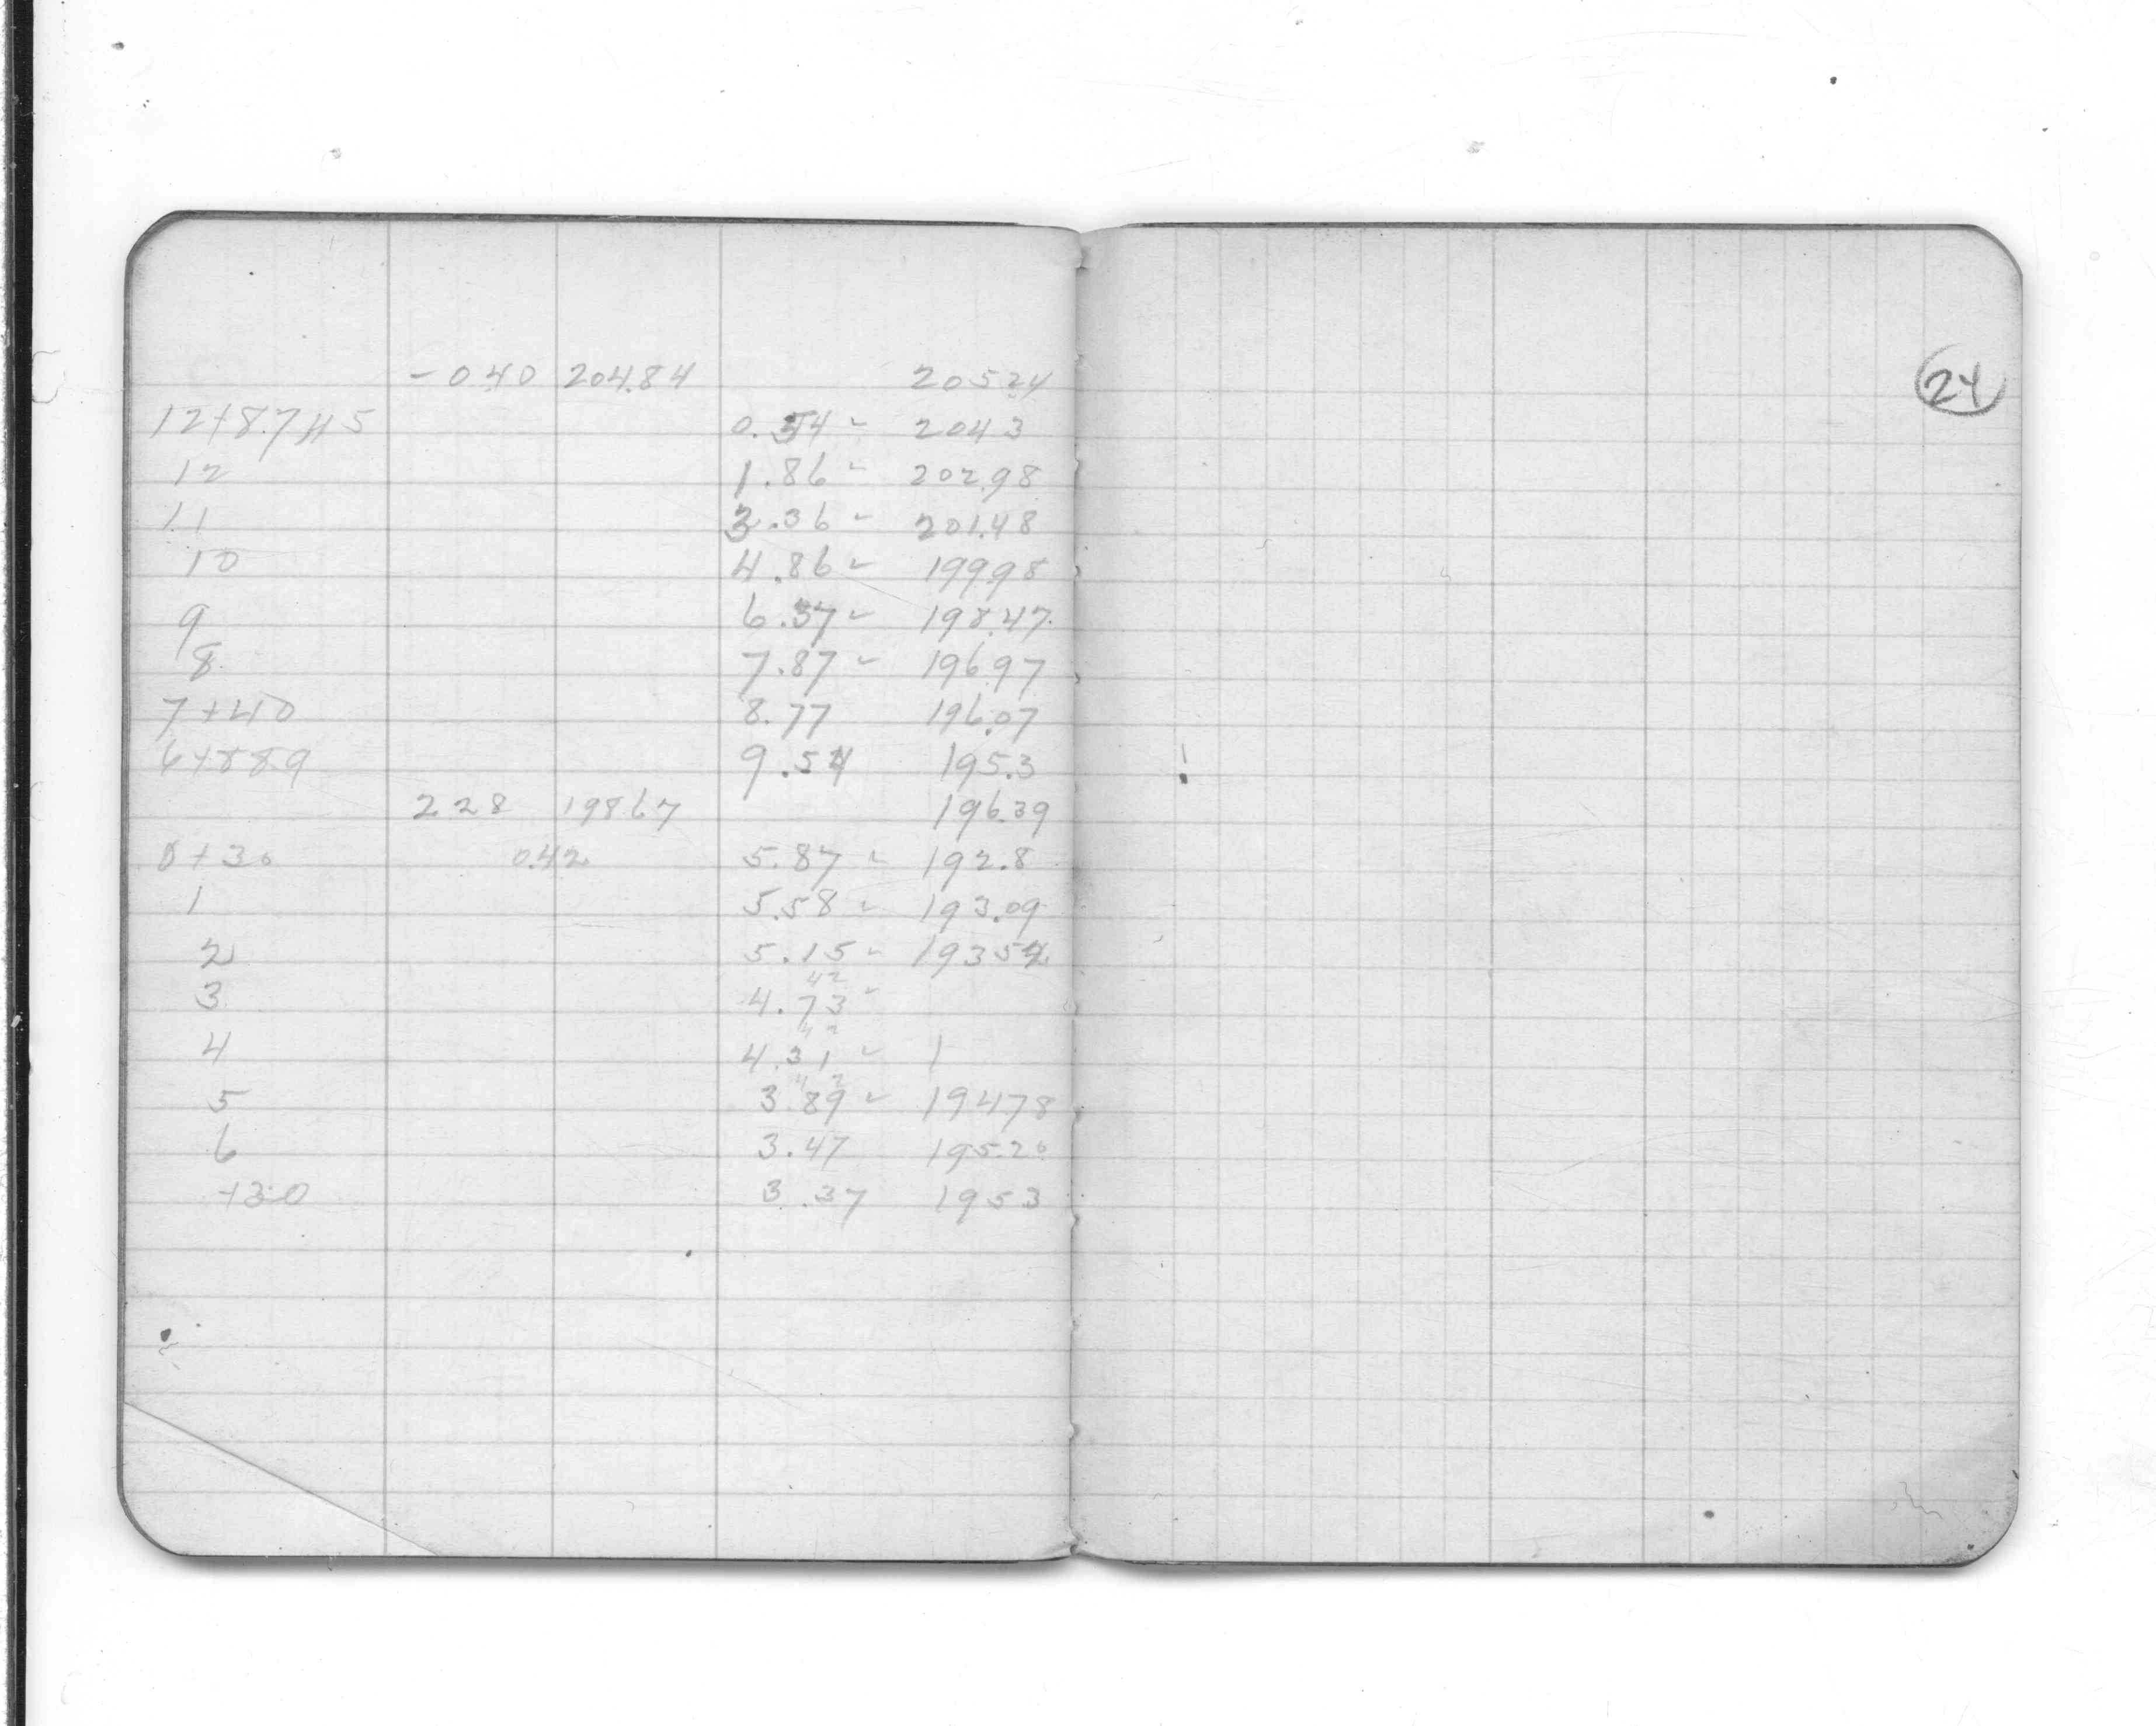 -0.40 204.84 205.24
12+87.45 0.54 - 204.3
12 1.86 - 202.98
11 3.36 - 201.48
10 4.86 - 199.98
9 6.37 - 198.47
8 7.87 - 196.97
7+40 8.77 196.07
6+88.9 9.54 195.3
2 28 198.67 196.39
0+30 0.42 5.87 - 192.8
1 5.58 - 193.09
2 5.15 - 193.52
42
3 4.73 -
42
4 4.31 - 1
42
5 3.89 - 194.78
6 3.47 195.20
+30 3.37 195 3
24